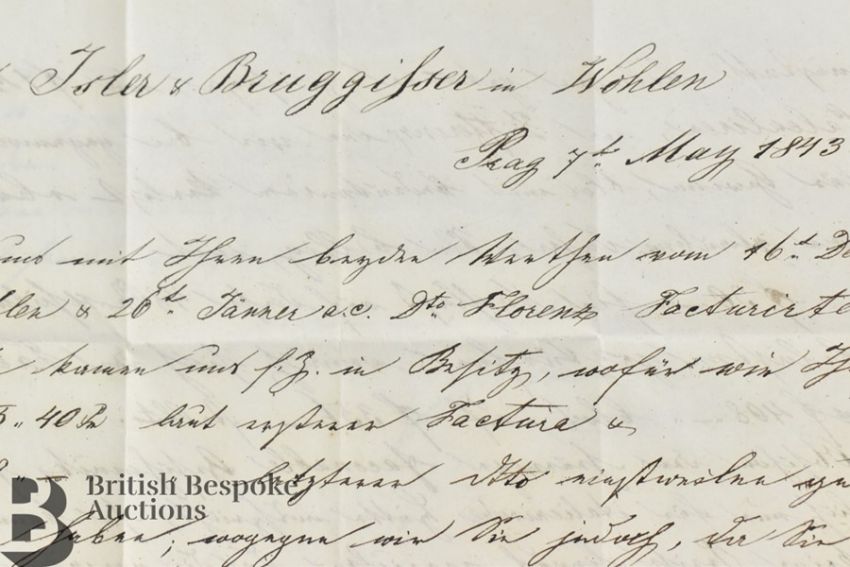 Isler & Bruggisser in Wohlen
Prag 7t. May 1843
uns mit Ihren beyden Werthen vom 16t. De
len & 26t. Jänner a.c. Dto Florenz Facturirte
kamen uns s.Z. in Besitz, wofür wir Ih
40 laut ersterer Factura &
letzterer dtto einstweilen
haben; wogegen wir Sie jedoch, da Sie
British Bespoke
Auctions